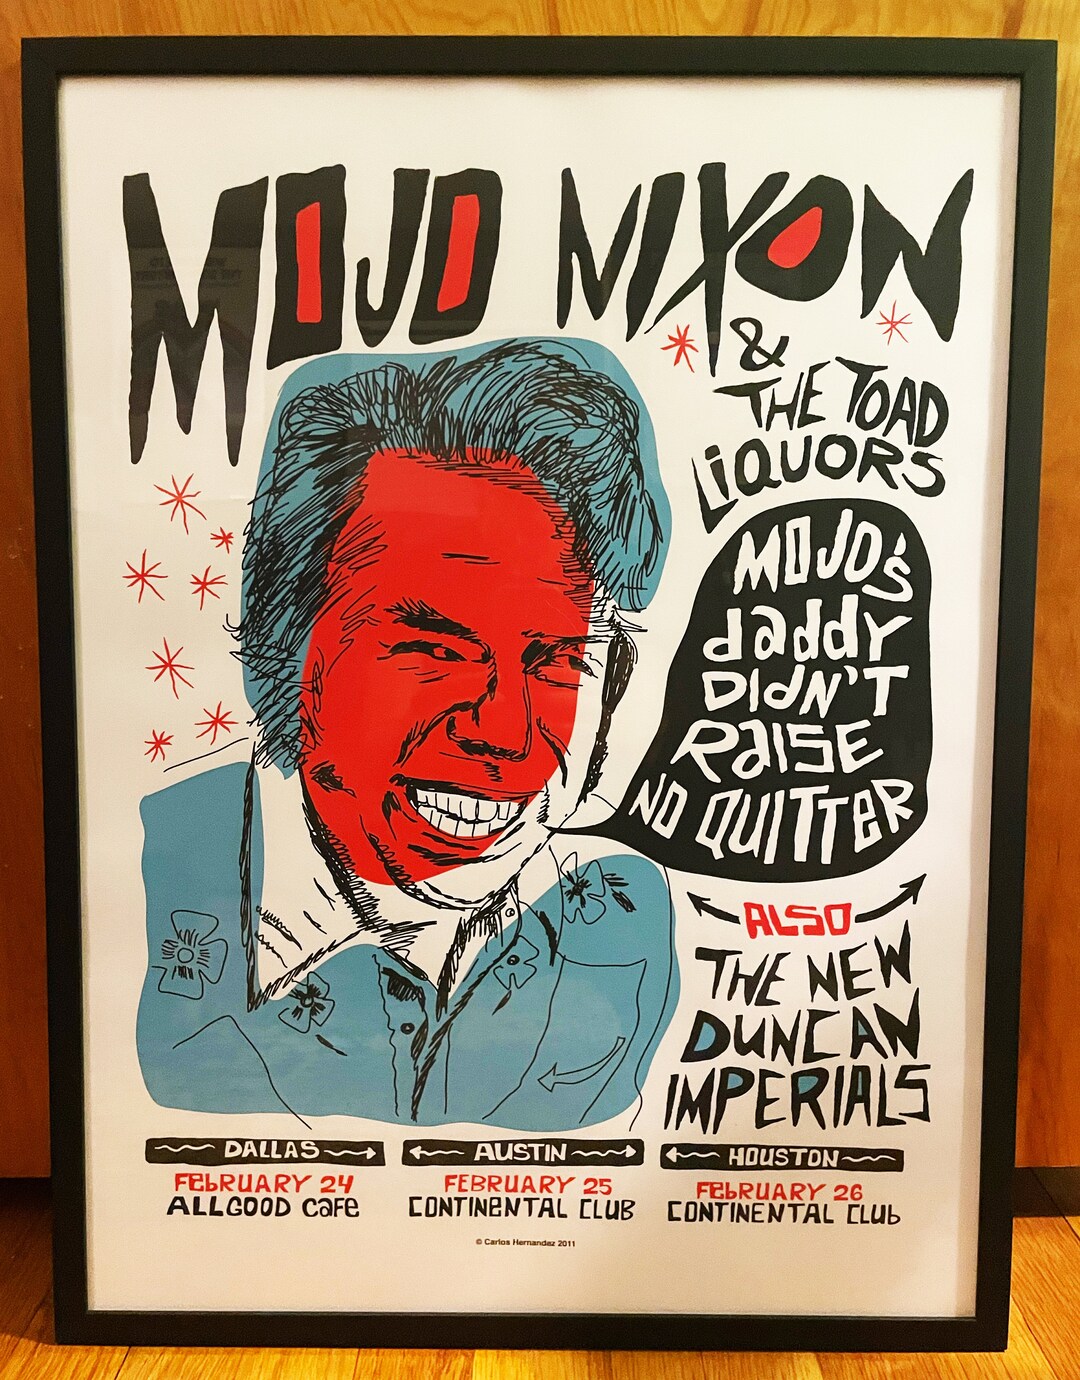 MOJO NIXON
&
THE TOAD
LiQUORS
MOJO's
daddy
DIdN'T
RaISE
NO QUITTeR
ALSO
THE NEW
DUNCAN
IMPERIALS
DALLAS
FEbRUARY 24
ALLGOOD CaFe
AUSTIN
FEBRUARY 25
CONTINENTAL CLUB
HOUSTON
FEbRUARY 26
CONTINENTAL CLUb
© Carlos Hernandez 2011